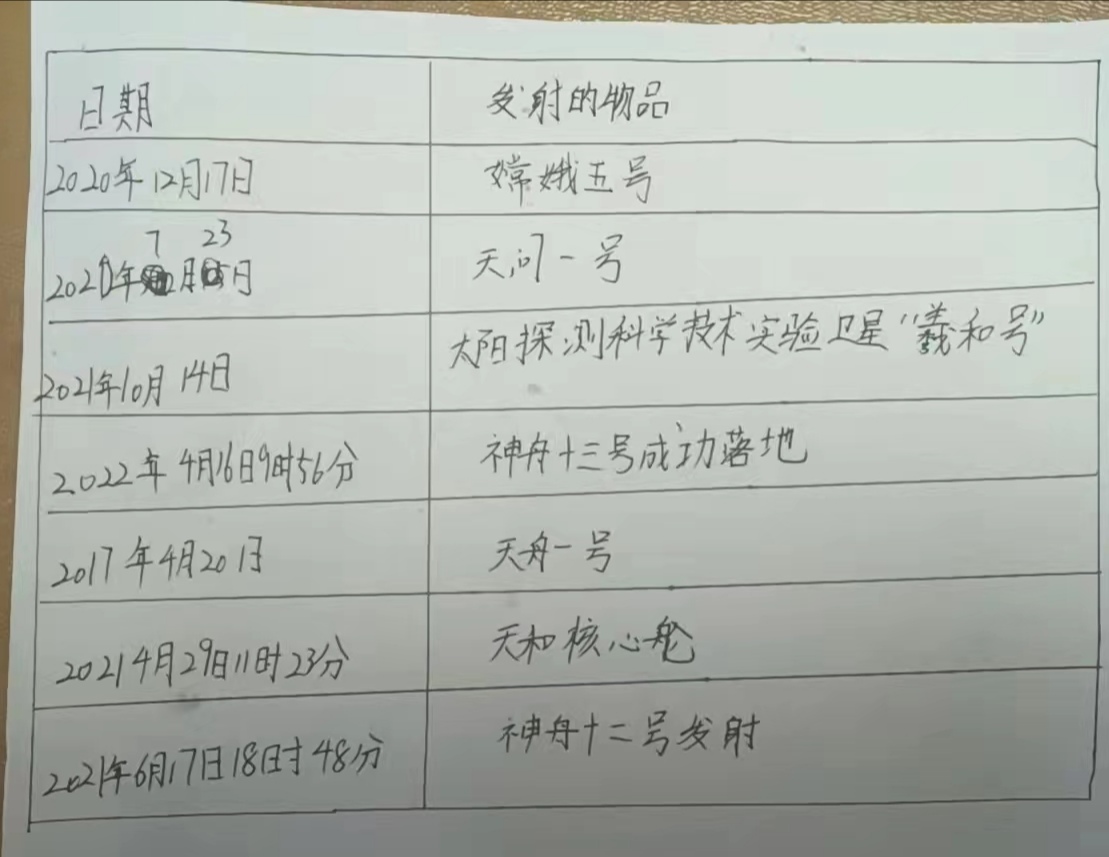 日期 发射的物品
2020年12月17日 嫦娥五号
7 23
202年月日 天问一号
2021年10月14日 太阳探测科学技术实验卫星“羲和号”
2022年4月16日9时56分 神舟十三号成功落地
2017年4月20日 天舟一号
2021 4月29日11时23分 天和核心舱
2021年6月17日18时48分 神舟十二号发射